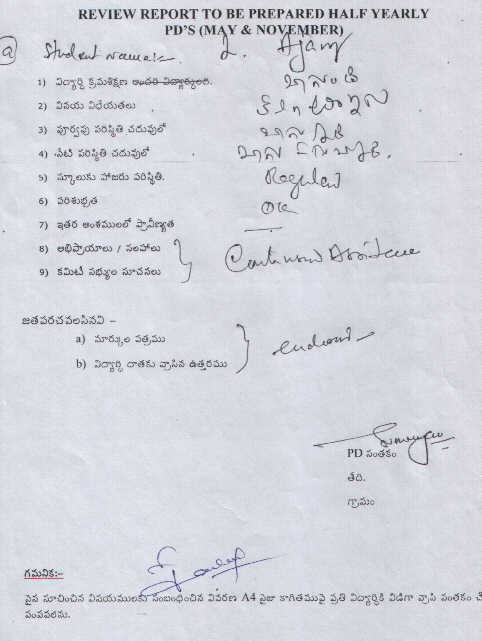 REVIEW REPORT TO BE PREPARED HALF YEARLY
PD'S (MAY & NOVEMBER)
a Student name:
1) విద్యార్థి క్రమశిక్షణ అందరి విద్యార్థులది.
2) వినయ విధేయతలు
3) పూర్వపు పరిస్థితి చదువులో
4) నేటి పరిస్థితి చదువులో
5) స్కూలుకు హాజరు పరిస్థితి. Regular
6) పరిశుభ్రత OK
7) ఇతర అంశములలో ప్రావీణ్యత
8) అభిప్రాయాలు / సలహాలు
9) కమిటీ సభ్యుల సూచనలు
జతపరచవలసినవి –
a) మార్కుల పత్రము
b) విద్యార్థి దాతకు వ్రాసిన ఉత్తరము
PD సంతకం
తేది.
గ్రామం
గమనిక:-
పైన సూచించిన విషయములకు సంబంధించిన వివరణ A4 సైజు కాగితముపై ప్రతి విద్యార్థికి విడిగా వ్రాసి సంతకం
పంపవలెను.